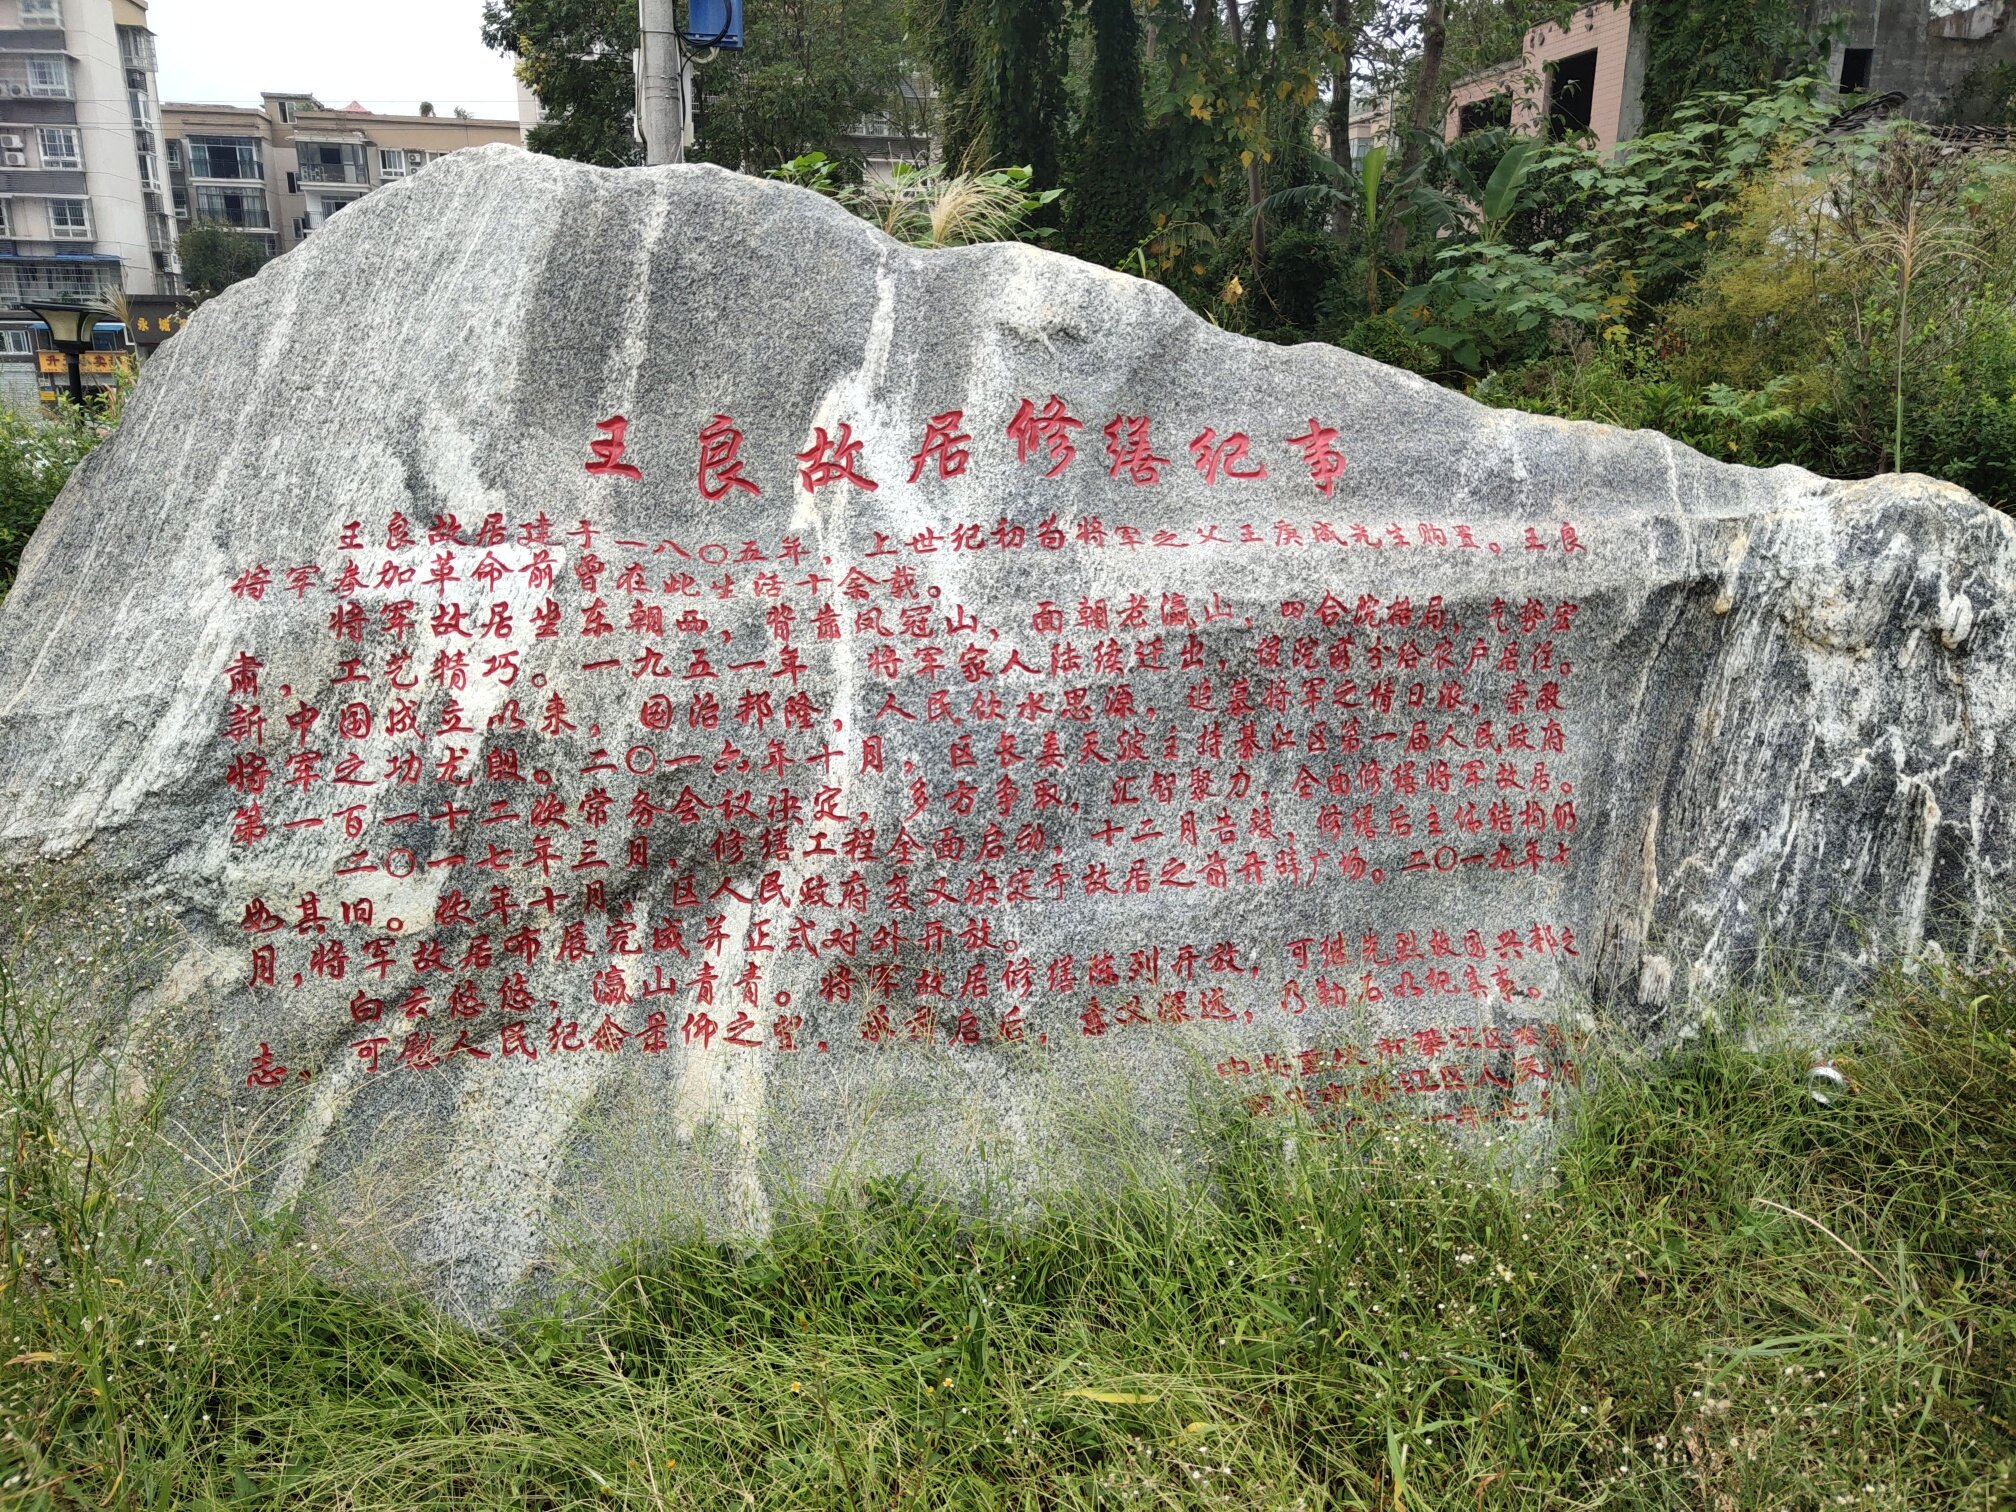 王良故居修缮纪事
王良故居建于一八〇五年，上世纪初为将军之父王庚成先生购置。王良
将军参加革命前曾在此生活十余载。
将军故居坐东朝西，背靠凤冠山，面朝老瀛山，四合院格局，气势宏
肃，工艺精巧。一九五一年，将军家人陆续迁出，后院落分给农户居住。
新中国成立以来，国治邦隆，人民饮水思源，追慕将军之情日浓，崇敬
将军之功尤殷。二〇一六年十月，区长姜天波主持綦江区第一届人民政府
第一百一十二次常务会议决定，多方争取，汇智聚力，全面修缮将军故居。
二〇一七年三月，修缮工程全面启动，十二月告竣，修缮后主体结构仍
如其旧。次年十月，区人民政府复又决定于故居之前开辟广场。二〇一九年七
月，将军故居布展完成并正式对外开放。
白云悠悠，瀛山青青。将军故居修缮陈列开放，可继先烈救国兴邦之
志、可慰人民纪念景仰之望，承前启后，意义深远，乃勒石以纪其事。
中共重庆市綦江区委
重庆市綦江区人民
一年七月
永城